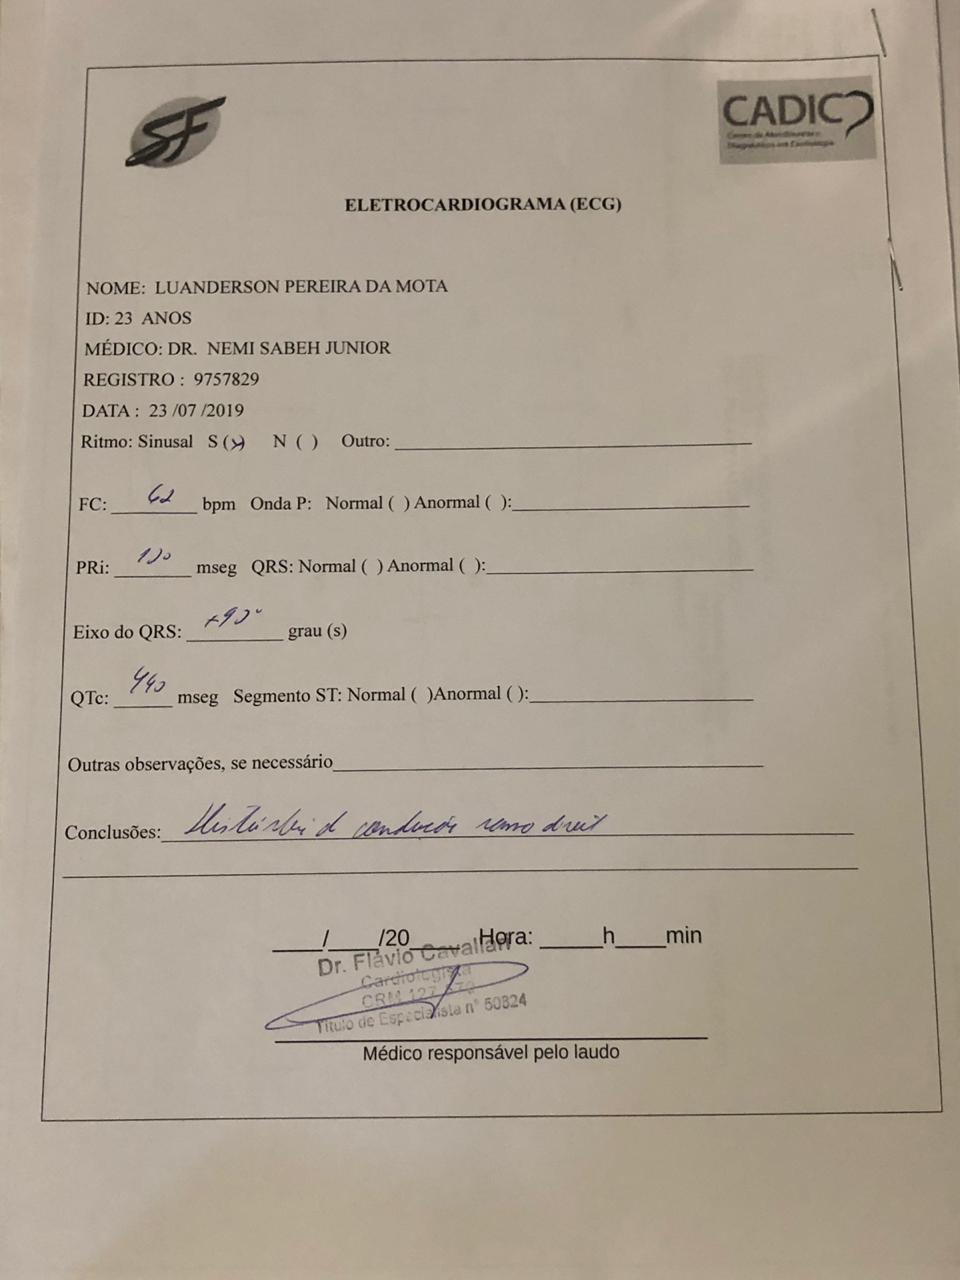 SF
CADIC
Centro de Atendimento e
Diagnósticos em Cardiologia
ELETROCARDIOGRAMA (ECG)
NOME: LUANDERSON PEREIRA DA MOTA
ID: 23 ANOS
MÉDICO: DR. NEMI SABEH JUNIOR
REGISTRO : 9757829
DATA : 23 /07 /2019
Ritmo: Sinusal S (x) N ( ) Outro:
FC: 62 bpm Onda P: Normal ( ) Anormal ( ):
PRi: 120 mseg QRS: Normal ( ) Anormal ( ):
Eixo do QRS: +90° grau (s)
QTc: 440 mseg Segmento ST: Normal ( )Anormal ( ):
Outras observações, se necessário
Conclusões: Distúrbio d condução ramo direit
____/____/20____ Hora: _____h____min
Dr. Flávio Cavallari
Cardiologista
CRM 127
Título de Especialista n° 50824
Médico responsável pelo laudo